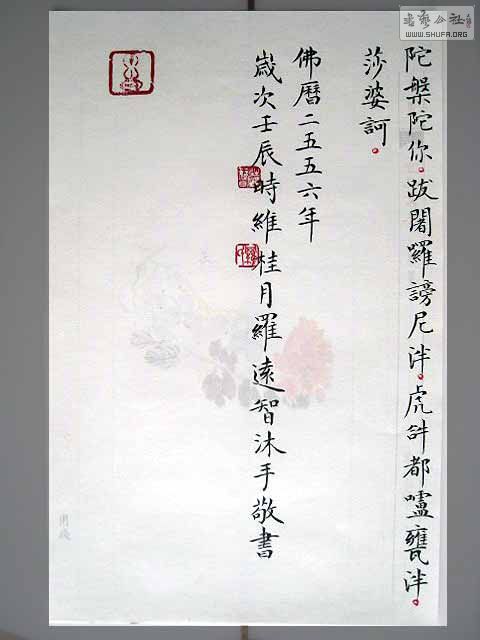 陀槃陀你跋闍羅謗尼泮虎𤙖都嚧甕泮
莎婆訶
佛曆二五五六年
歲次壬辰時維桂月羅遠智沐手敬書
書藝公社
WWW.SHUFA.ORG